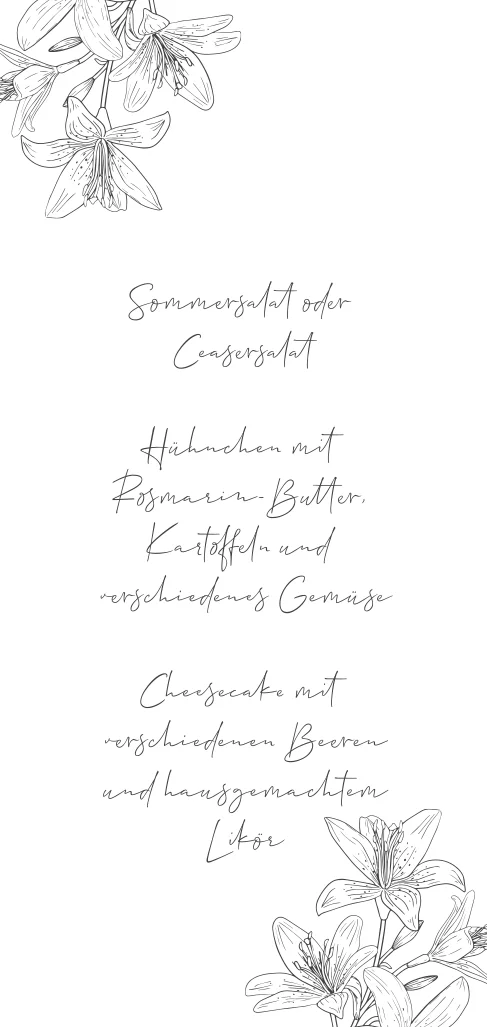 Sommersalat oder
Ceasersalat
Hühnchen mit
Rosmarin-Butter,
Kartoffeln und
verschiedenes Gemüse
Cheesecake mit
verschiedenen Beeren
und hausgemachtem
Likör